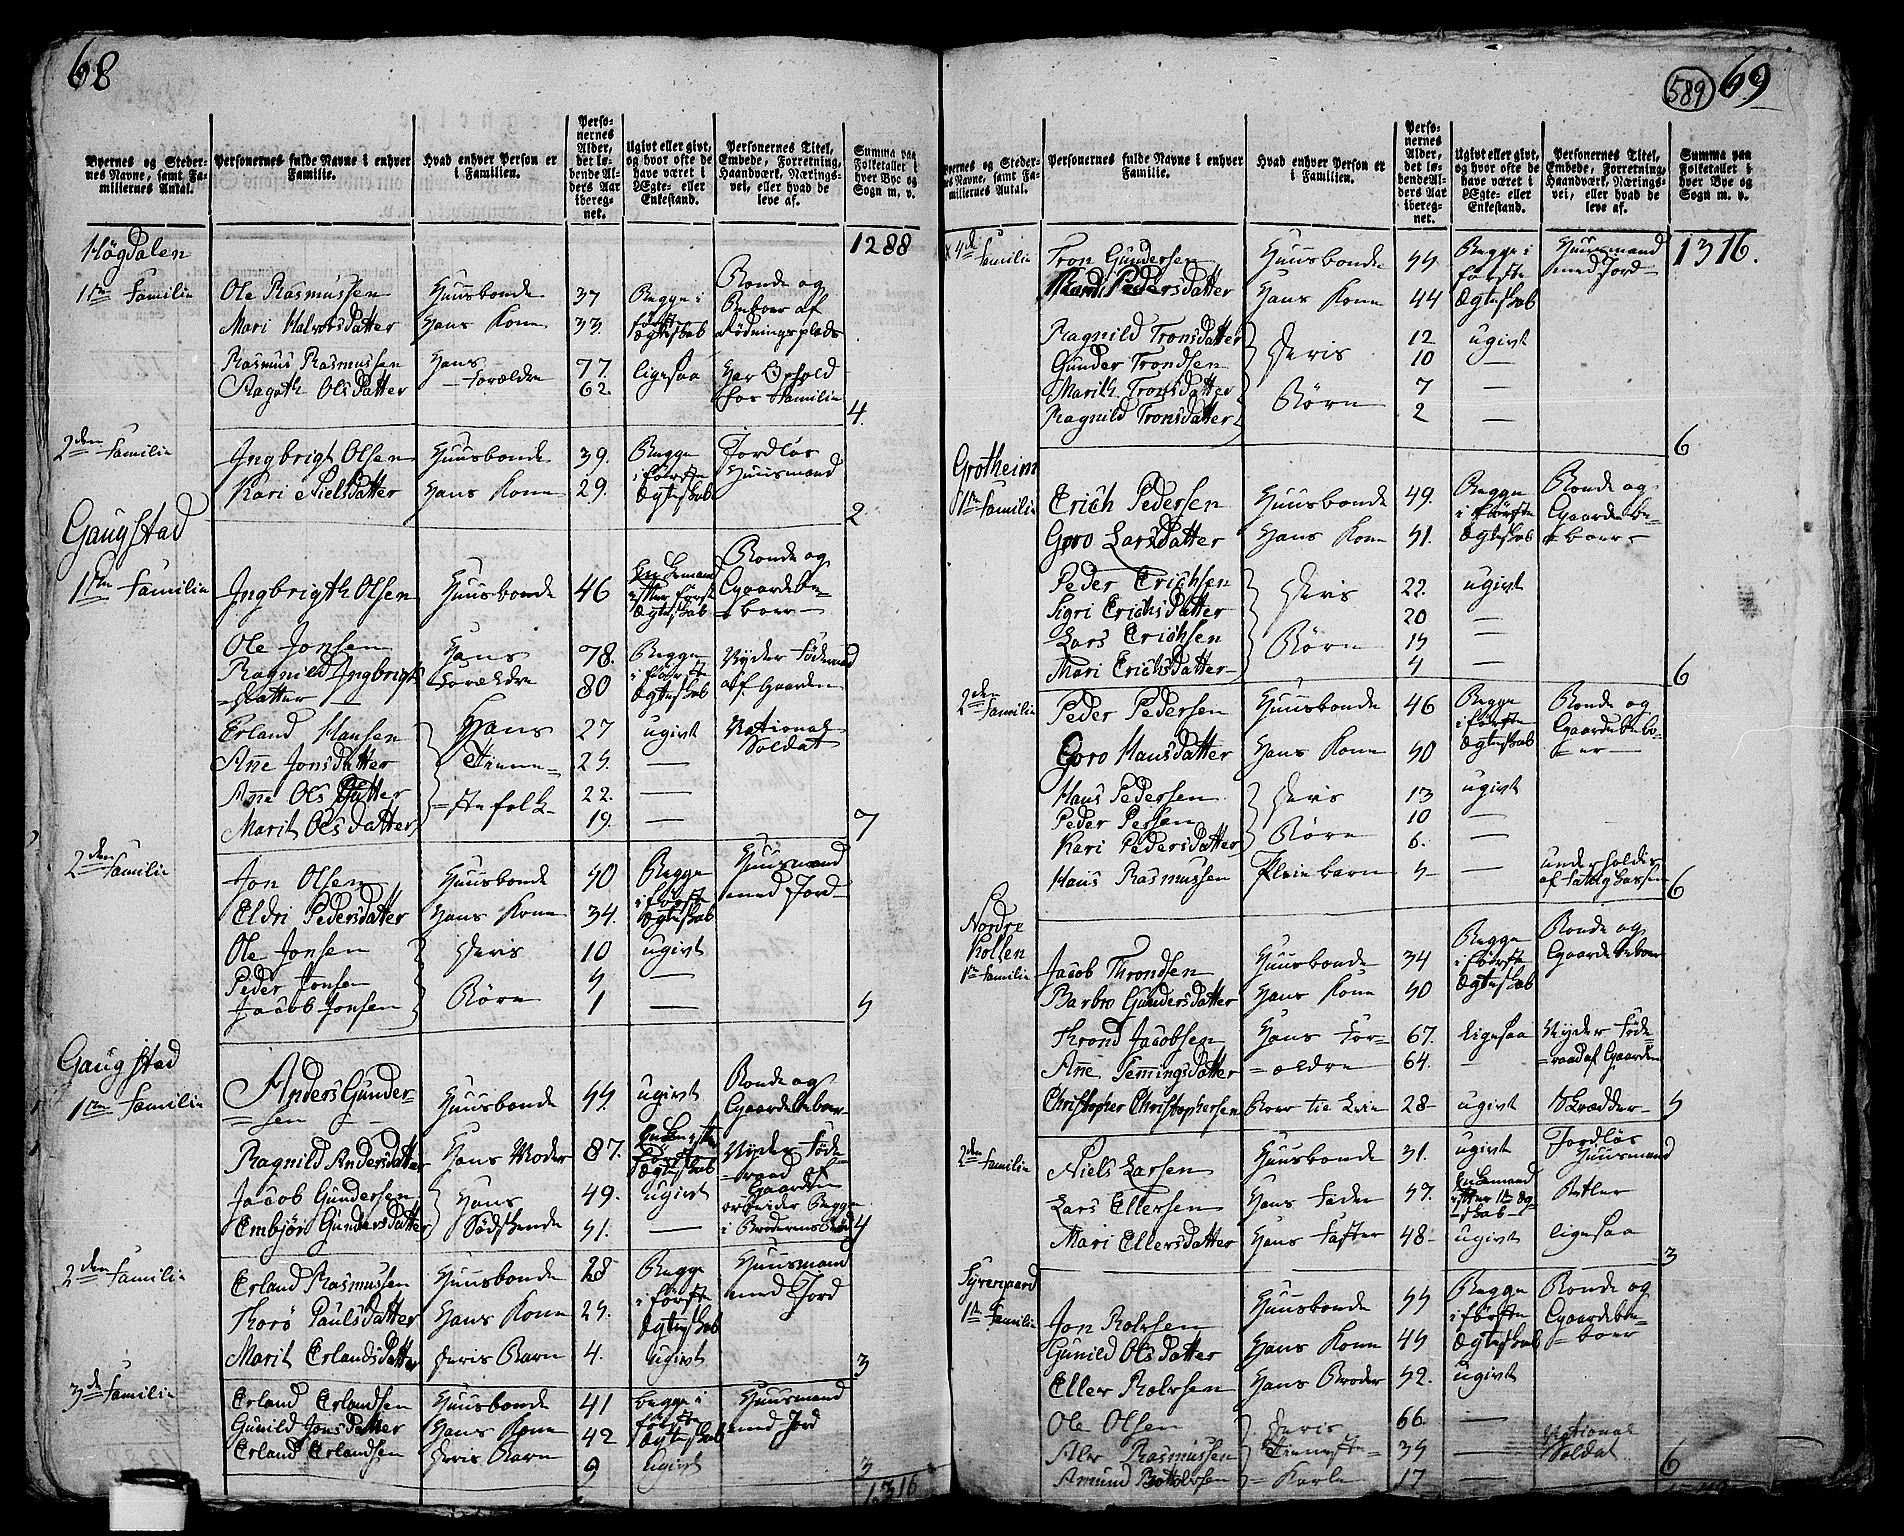 68
Byernes og Steder-
nes Navne, samt Fa-
miliernes Antal.
Personernes fulde Navne i enhver
Familie.
Hvad enhver Person er
i Familien.
Perso-
nernes
Alder,
det lø-
bende Al-
ders Aar
iberegnet.
Ugivt eller givt,
og hvor ofte de
have været i
Ægte- eller
Enkestand.
Personernes Titel,
Embede, Forretning,
Haandværk, Nærings-
vei, eller hvad de
leve af.
Summa paa
Folketallet i
hver Bye og
Sogn m. v.
Høgdalen 1288
1ste Familie Ole Rasmussen Huusbonde 37 Begge i første Ægteskab Bonde og Beboer af Rødningsplads
Mari Halvorsdatter Hans Kone 33.
Rasmus Rasmussen Hans Forældre 77. ligesaa Har Ophold hos Familie
Ragnh Olsdatter 62. 4.
2den Familie Ingbrigt Olsen Huusbonde 39. Begge i første Ægteskab Jordløs Huusmand
Kari Nielsdatter Hans Kone 29. 2
Gaugstad
1ste Familie Ingbrigth Olsen Huusbonde 46 Enkemand efter første Ægteskab Bonde og Gaardbe-
=boer
Ole Jonsen Hans Forældre 78. Begge i første Ægteskab Nyder Føderaad af Gaarden
Ragnild Ingbrigts
=datter 80
Erland Hansen Hans 27 ugivt National Soldat
Anne Jonsdatter Tiene= 25. —
Anne Olsdatter =stefolk 22. —
Marit Olsdatter 19. — 7
2den Familie Jon Olsen Huusbonde 50 Begge i første Ægteskab Huusmand med Jord
Eldri Pedersdatter Hans Kone 34.
Ole Jonsen Deris 10 ugivt
Peder Jonsen Børn 5 —
Jacob Jonsen 1 — 5
Gaugstad
1ste Familie Anders Gunder-
=sen Huusbonde 55. ugivt Bonde og Gaardbeboer
Ragnild Andersdatter Hans Moder 87. Enke efter første Ægteskab Nyder Føde-
=raad af Gaarden
Jacob Gundersen Hans 49. ugivt arbeider Begge
Embjør Gundersdatter Sødskende 51. — i Broderens 4
2den Familie Erland Rasmussen Huusbonde 28 Begge i første Ægteskab Huusmand med Jord
Thorø Paulsdatter Hans Kone 25.
Marit Erlandsdatter Deris Barn 4. ugivt 3
3de Familie Erland Erlandsen Huusbonde 41 begge i første Ægteskab Huusmand med Jord
Gunild Jonsdatter Hans Kone 42
Erland Erlandsen Deris Barn 9 ugivt 3
1316
589 69
Byernes og Steder-
nes Navne, samt Fa-
miliernes Antal.
Personernes fulde Navne i enhver
Familie.
Hvad enhver Person er
i Familien.
Perso-
nernes
Alder,
det lø-
bende Al-
ders Aar
iberegnet.
Ugivt eller givt,
og hvor ofte de
have været i
Ægte- eller
Enkestand.
Personernes Titel,
Embede, Forretning,
Haandværk, Nærings-
vei, eller hvad de
leve af.
Summa paa
Folketallet i
hver Bye og
Sogn m. v.
4de Familie Tron Gundersen Huusbonde 55 Begge i første Ægteskab Huusmand med Jord 1316.
Rand. Pedersdatter Hans Kone 44
Ragnild Tronsdatter Deris 12 ugivt
Gunder Trondsen 10 —
Marith Tronsdatter Børn 7 —
Ragnild Tronsdatter 2 — 6
Grotheim
1ste Familie Erich Pedersen Huusbonde 49. Begge i første Ægteskab Bonde og Gaardbe-
=boer
Goro Larsdatter Hans Kone 51.
Peder Erichsen Deris 22. ugivt
Sigri Erichsdatter 20 —
Lars Erichsen Børn 15 —
Mari Erichsdatter 5 — 6
2den Familie Peder Pedersen Huusbonde 46 Begge i første Ægteskab Bonde og Gaardbebo-
=er
Goro Hansdatter Hans Kone 50
Hans Pedersen Deris 13 ugivt
Peder Persen 10 —
Kari Pedersdatter Børn 6. —
Hans Rasmussen Pleiebarn 5 — underholdes af Fattig Cassen 6
Nordre
Kolsen
1ste Familie Jacob Throndsen Huusbonde 34 Begge i første Ægteskab Bonde og Gaardbeboer
Barbro Gundersdatter Hans Kone 50
Thrond Jacobsen Hans For- 67. Ligesaa Nyder Føde-
Anne Temingsdatter =ældre 64. — =raad af Gaarden
Christopher Christophersen Boer til Leie 28 ugivt Skrædder 5
2den Familie Niels Larsen Huusbonde 31. ugivt Jordløs Huusmand
Lars Ellersen Hans Fader 57. Enkemand efter 1te Æg-
teskab Betler
Mari Ellersdatter Hans Faster 48 ugivt ligesaa 3
Gyrergaard
1ste Familie Jon Rolvsen Huusbonde 55 Begge i første Ægteskab Bonde og Gaardbe-
=boer
Gunild Olsdatter Hans Kone 45
Eller Rolvsen Hans Broder 52. ugivt
Ole Olsen Deris 66. —
Aler Rasmussen Tieneste= 35 — National Soldat
Amund Botolvsen =Karle 17 — 6